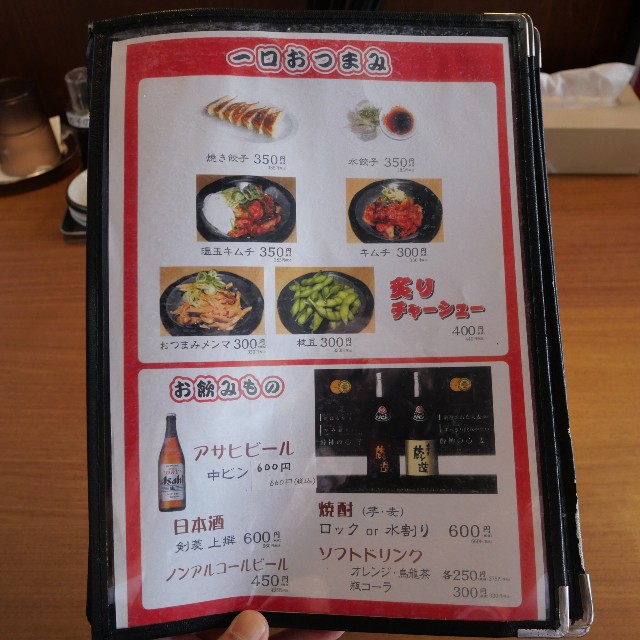 一口おつまみ
焼き餃子 350円
水餃子 350円
温玉キムチ 350円
キムチ 300円
おつまみメンマ 300円
枝豆 300円
炙り
チャーシュー
400円
お飲みもの
Asahi
アサヒビール
中ビン 600円
660円(税込)
日本酒
剣菱 上撰 600円
ノンアルコールビール
450円
焼酎 (芋・麦)
ロック or 水割り 600円
ソフトドリンク
オレンジ・烏龍茶 各250円
瓶コーラ 300円